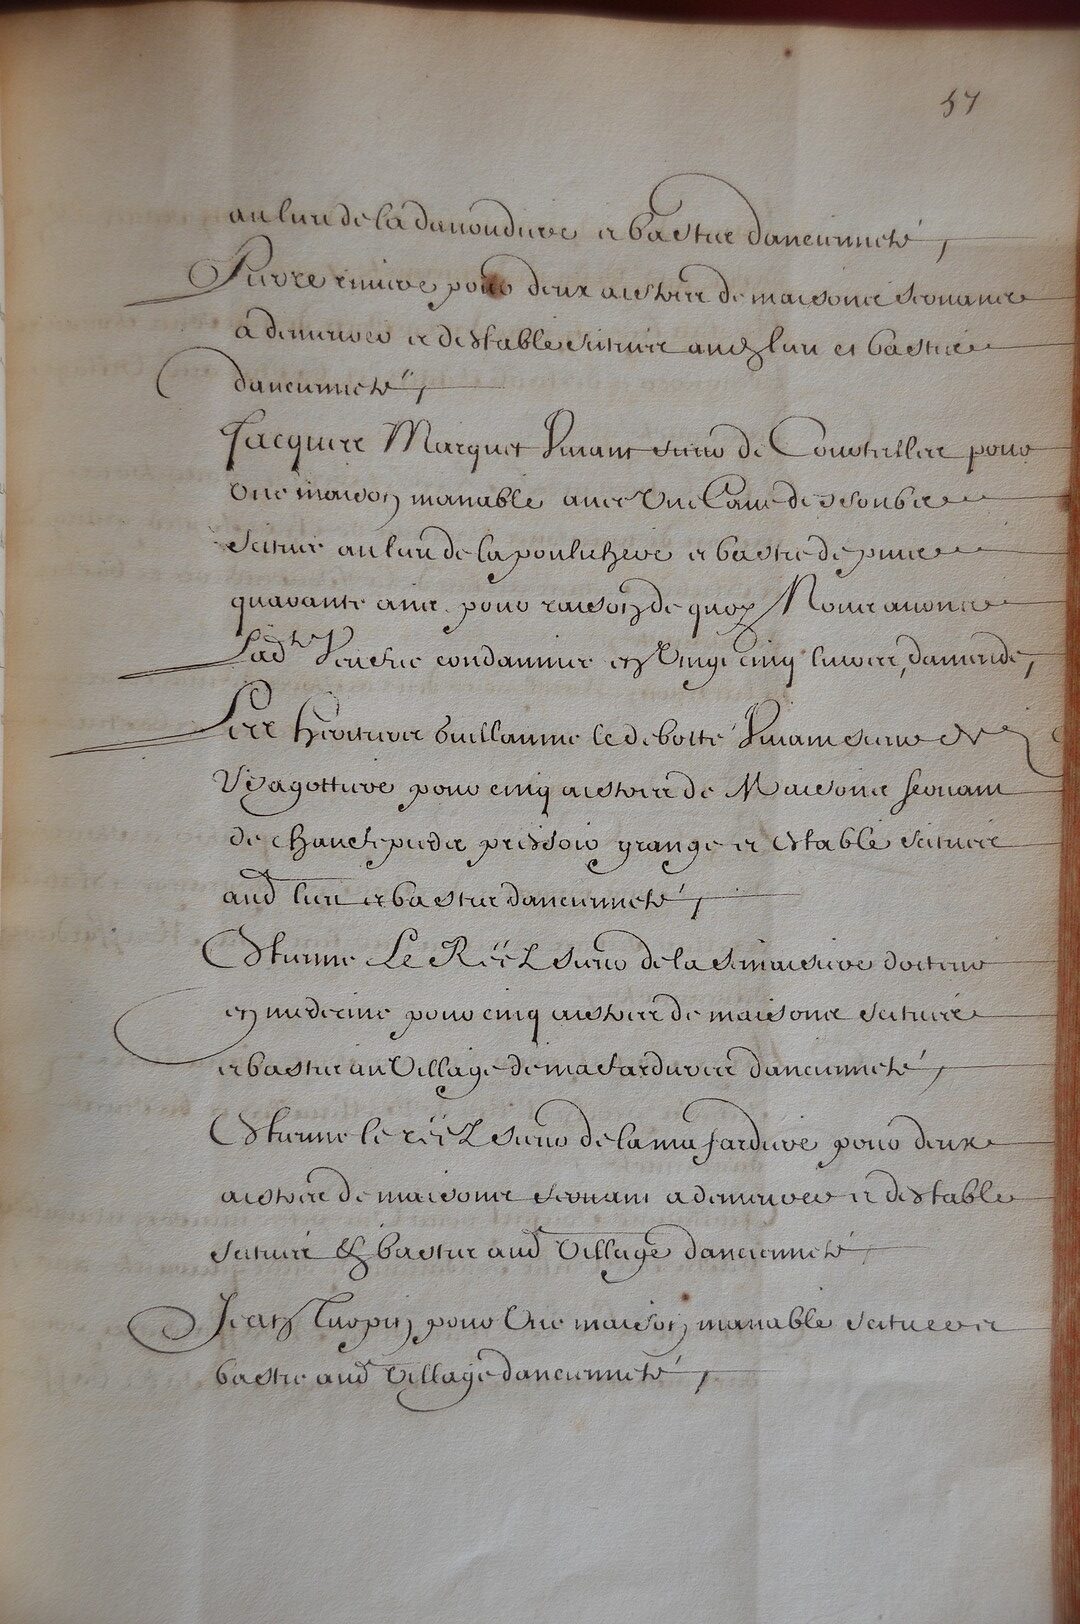 57
au lieu de la dauoudiere et bastie d'ancienneté,
Pierre riuiere pour deux aistres de maisons seruant
a demeurer et destable scituée aud lieu et bastie
dancienneté,
Jacques Marquet viuant sieur de Courteilles pour
Une maison manable auec Une Caue dessoubz
scitue au lieu de la poulichere et bastie depuis
quarante ans pour raison de quoy Nous auons
Lad.te Veufue condamnée en Vingt cinq liures damende,
Les heritiers Guillaume le debotté viuant sieur de
Vizagottiere pour cinq aistres de Maisons seruant
de Chauftepieds pressoir grange et Estable scituée
aud lieu et bastie dancienneté,
Estienne Le Réez sieur de la simaisiere docteur
en medecine pour cinq aistres de maisons scituée
et bastie au Village de mafardiere dancienneté,
Estienne le réez sieur de la mafardiere pour deux
aistres de maisons seruant a demeurer et destable
scitué & bastie aud Village dancienneté,
Jean Turpin pour Une maison manable scituee et
bastie aud Village dancienneté,